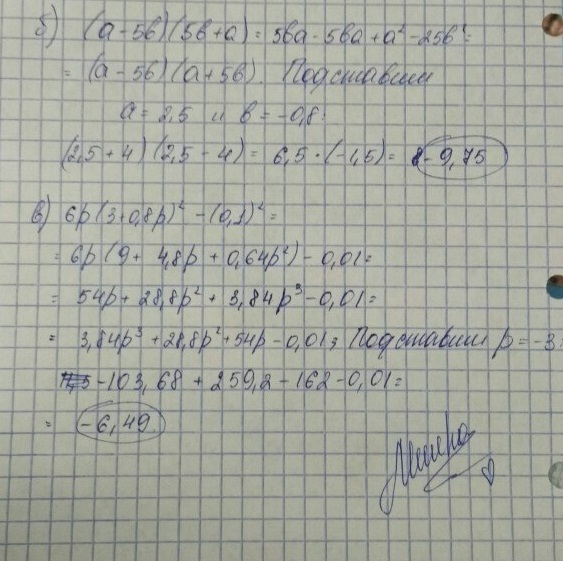 б) (а - 5в)(5в + а) = 5ва - 5ва + а² - 25в² =
= (а - 5в)(а + 5в). Подставим
а = 2,5 и в = -0,8:
(2,5 + 4)(2,5 - 4) = 6,5 · (-1,5) = -9,75
в) 6р(3+0,8р)² - (0,1)² =
= 6р(9 + 4,8р + 0,64р²) - 0,01 =
= 54р + 28,8р² + 3,84р³ - 0,01 =
= 3,84р³ + 28,8р² + 54р - 0,01; Подставим р = -3:
-103,68 + 259,2 - 162 - 0,01 =
= -6,49